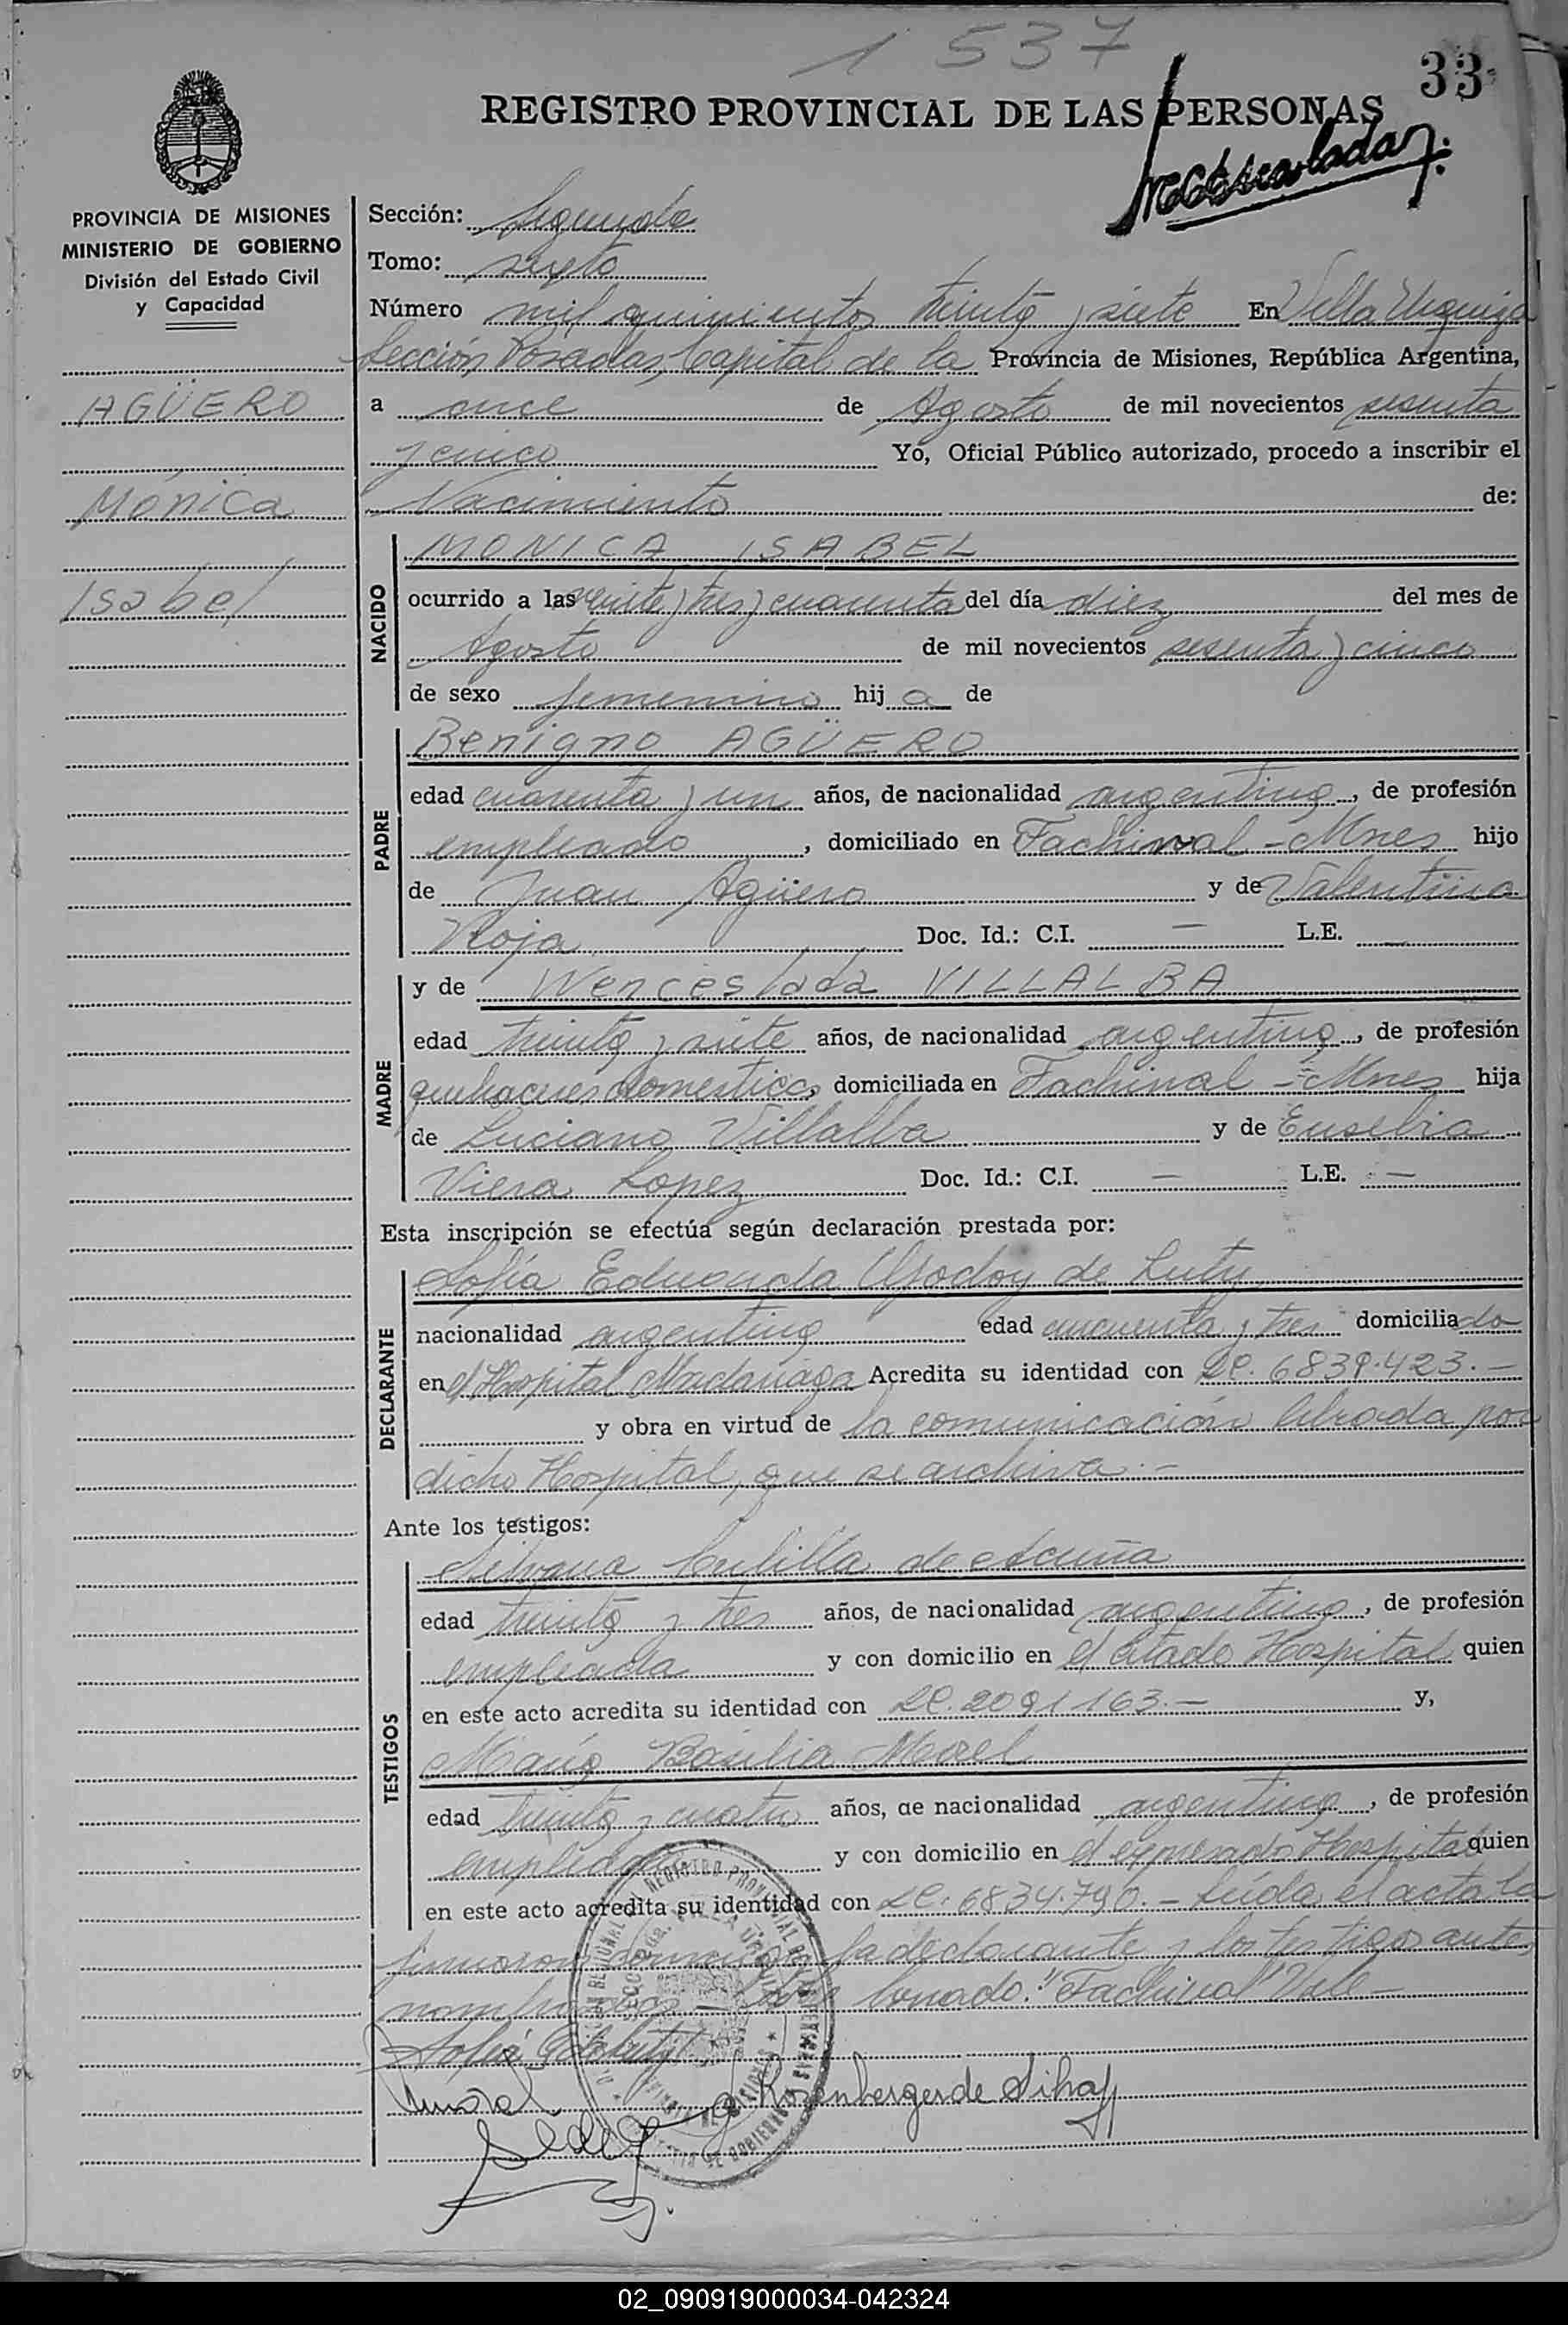 1537
33
REGISTRO PROVINCIAL DE LAS PERSONAS
PROVINCIA DE MISIONES
MINISTERIO DE GOBIERNO
División del Estado Civil
y Capacidad
AGÜERO
Mónica
Isabel
Sección: Segunda
Tomo: sexto
Número mil quinientos treinta y siete En Villa Urquiza
Sección Posadas, Capital de la Provincia de Misiones, República Argentina,
a once de Agosto de mil novecientos sesenta
y cinco Yo, Oficial Público autorizado, procedo a inscribir el
Nacimiento de:
NACIDO
MONICA ISABEL
ocurrido a las veinte y tres y cuarenta del día diez del mes de
Agosto de mil novecientos sesenta y cinco
de sexo femenino hija de
PADRE
Benigno AGÜERO
edad cuarenta y un años, de nacionalidad argentina, de profesión
empleado, domiciliado en Fachinal - Mnes hijo
de Juan Agüero y de Valentina
Roja Doc. Id.: C.I. — L.E.
MADRE
y de Wenceslada VILLALBA
edad treinta y siete años, de nacionalidad argentina, de profesión
quehaceres domesticos domiciliada en Fachinal - Mnes hija
de Luciano Villalba y de Eusebia
Viera Lopez Doc. Id.: C.I. — L.E. —
Esta inscripción se efectúa según declaración prestada por:
DECLARANTE
Sofía Eduarda Godoy de Luty
nacionalidad argentina edad cincuenta y tres domiciliada
en el Hospital Madariaga Acredita su identidad con LC. 6839.423.—
y obra en virtud de la comunicación librada por
dicho Hospital, que se archiva.—
Ante los testigos:
TESTIGOS
Silvana de Acuña
edad treinta y tres años, de nacionalidad argentina, de profesión
empleada y con domicilio en el citado Hospital quien
en este acto acredita su identidad con LC. 2091163.— y,
María Basilia Morel
edad treinta y cuatro años, de nacionalidad argentina, de profesión
empleada y con domicilio en el expresado Hospital quien
en este acto acredita su identidad con LC. 6834.790.— Leída el acta la
firmaron conmigo la declarante y los testigos antes
nombrados — borrado: "Fachinal" Vale —
Rosenberger de Silva
02_090919000034-042324